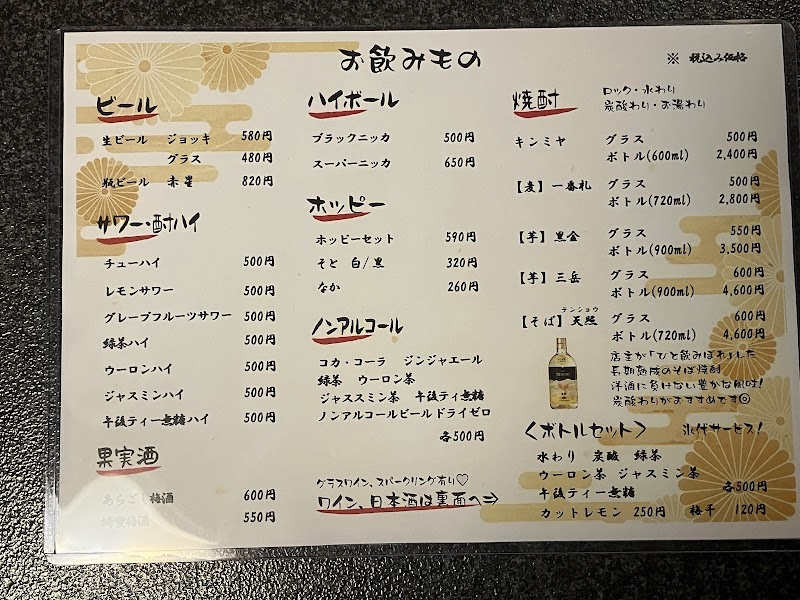 お飲みもの
※ 税込み価格
ビール
生ビール ジョッキ 580円
グラス 480円
瓶ビール 赤星 820円
サワー・酎ハイ
チューハイ 500円
レモンサワー 500円
グレープフルーツサワー 500円
緑茶ハイ 500円
ウーロンハイ 500円
ジャスミンハイ 500円
午後ティー無糖ハイ 500円
果実酒
あらごし梅酒 600円
蜂蜜梅酒 550円
ハイボール
ブラックニッカ 500円
スーパーニッカ 650円
ホッピー
ホッピーセット 590円
そと 白/黒 320円
なか 260円
ノンアルコール
コカ・コーラ ジンジャエール
緑茶 ウーロン茶
ジャススミン茶 午後ティ無糖
ノンアルコールビールドライゼロ
各500円
グラスワイン、スパークリング有り♡
ワイン、日本酒は裏面へ⇒
焼酎
ロック・水わり
炭酸わり・お湯わり
キンミヤ グラス 500円
ボトル(600ml) 2,400円
【麦】一番札 グラス 500円
ボトル(720ml) 2,800円
【芋】黒金 グラス 550円
ボトル(900ml) 3,500円
【芋】三岳 グラス 600円
ボトル(900ml) 4,600円
テンショウ
【そば】天照 グラス 600円
ボトル(720ml) 4,600円
店主が「ひと飲みぼれ」した
長期熟成のそば焼酎
洋酒に負けない豊かな風味!
炭酸わりがおすすめです◎
〈ボトルセット〉 氷代サービス!
水わり 炭酸 緑茶
ウーロン茶 ジャスミン茶
午後ティー無糖 各500円
カットレモン 250円 梅干 120円